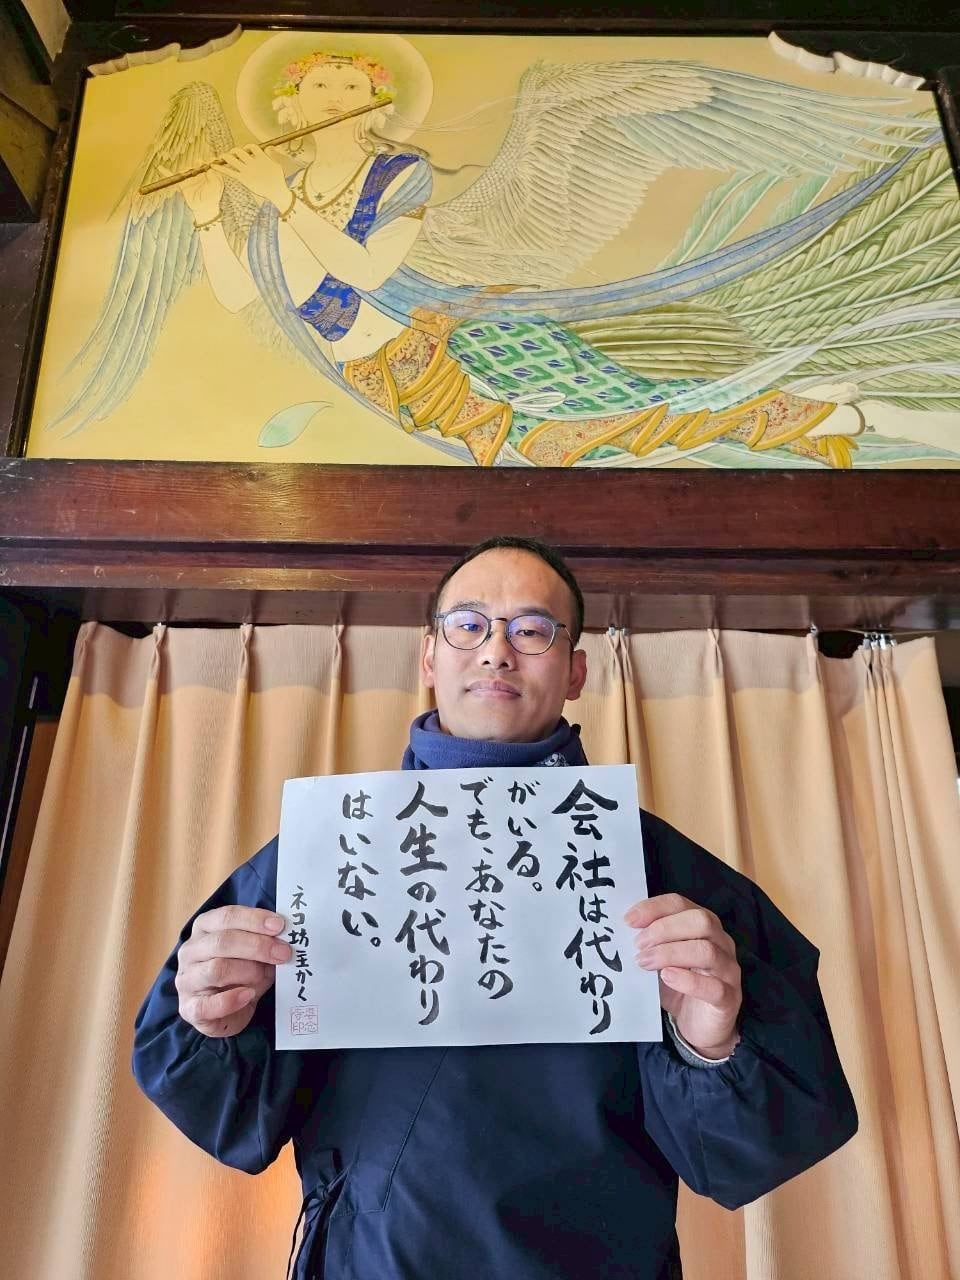 会社は代わり
がいる。
でも、あなたの
人生の代わり
はいない。
ネコ坊主かく